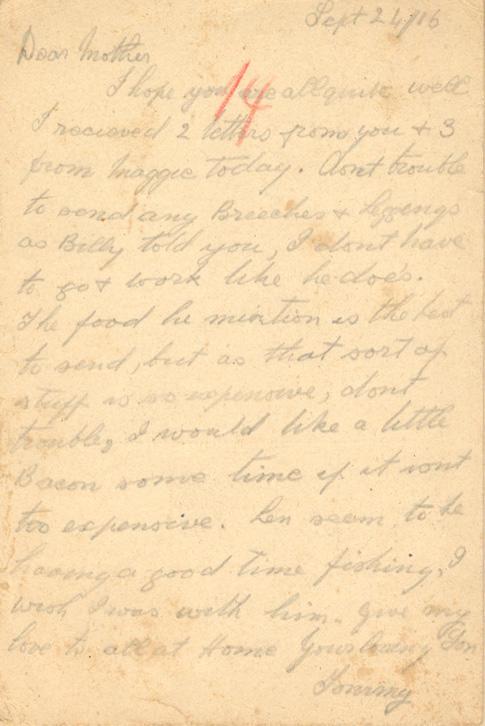 Sept 24/16
Dear Mother
I hope you are all quite well
14
I recieved 2 letters from you & 3
from Maggie today. Dont trouble
to send any Breeches & Leggings
as Billy told you, I dont have
to go & work like he does.
The food he mention is the best
to send, but as that sort of
stuff is so expensive, dont
trouble, I would like a little
Bacon some time if it isnt
too expensive. Len seem to be
having a good time fishing, I
wish I was with him. Give my
love to all at Home Your loving Son
Tommy